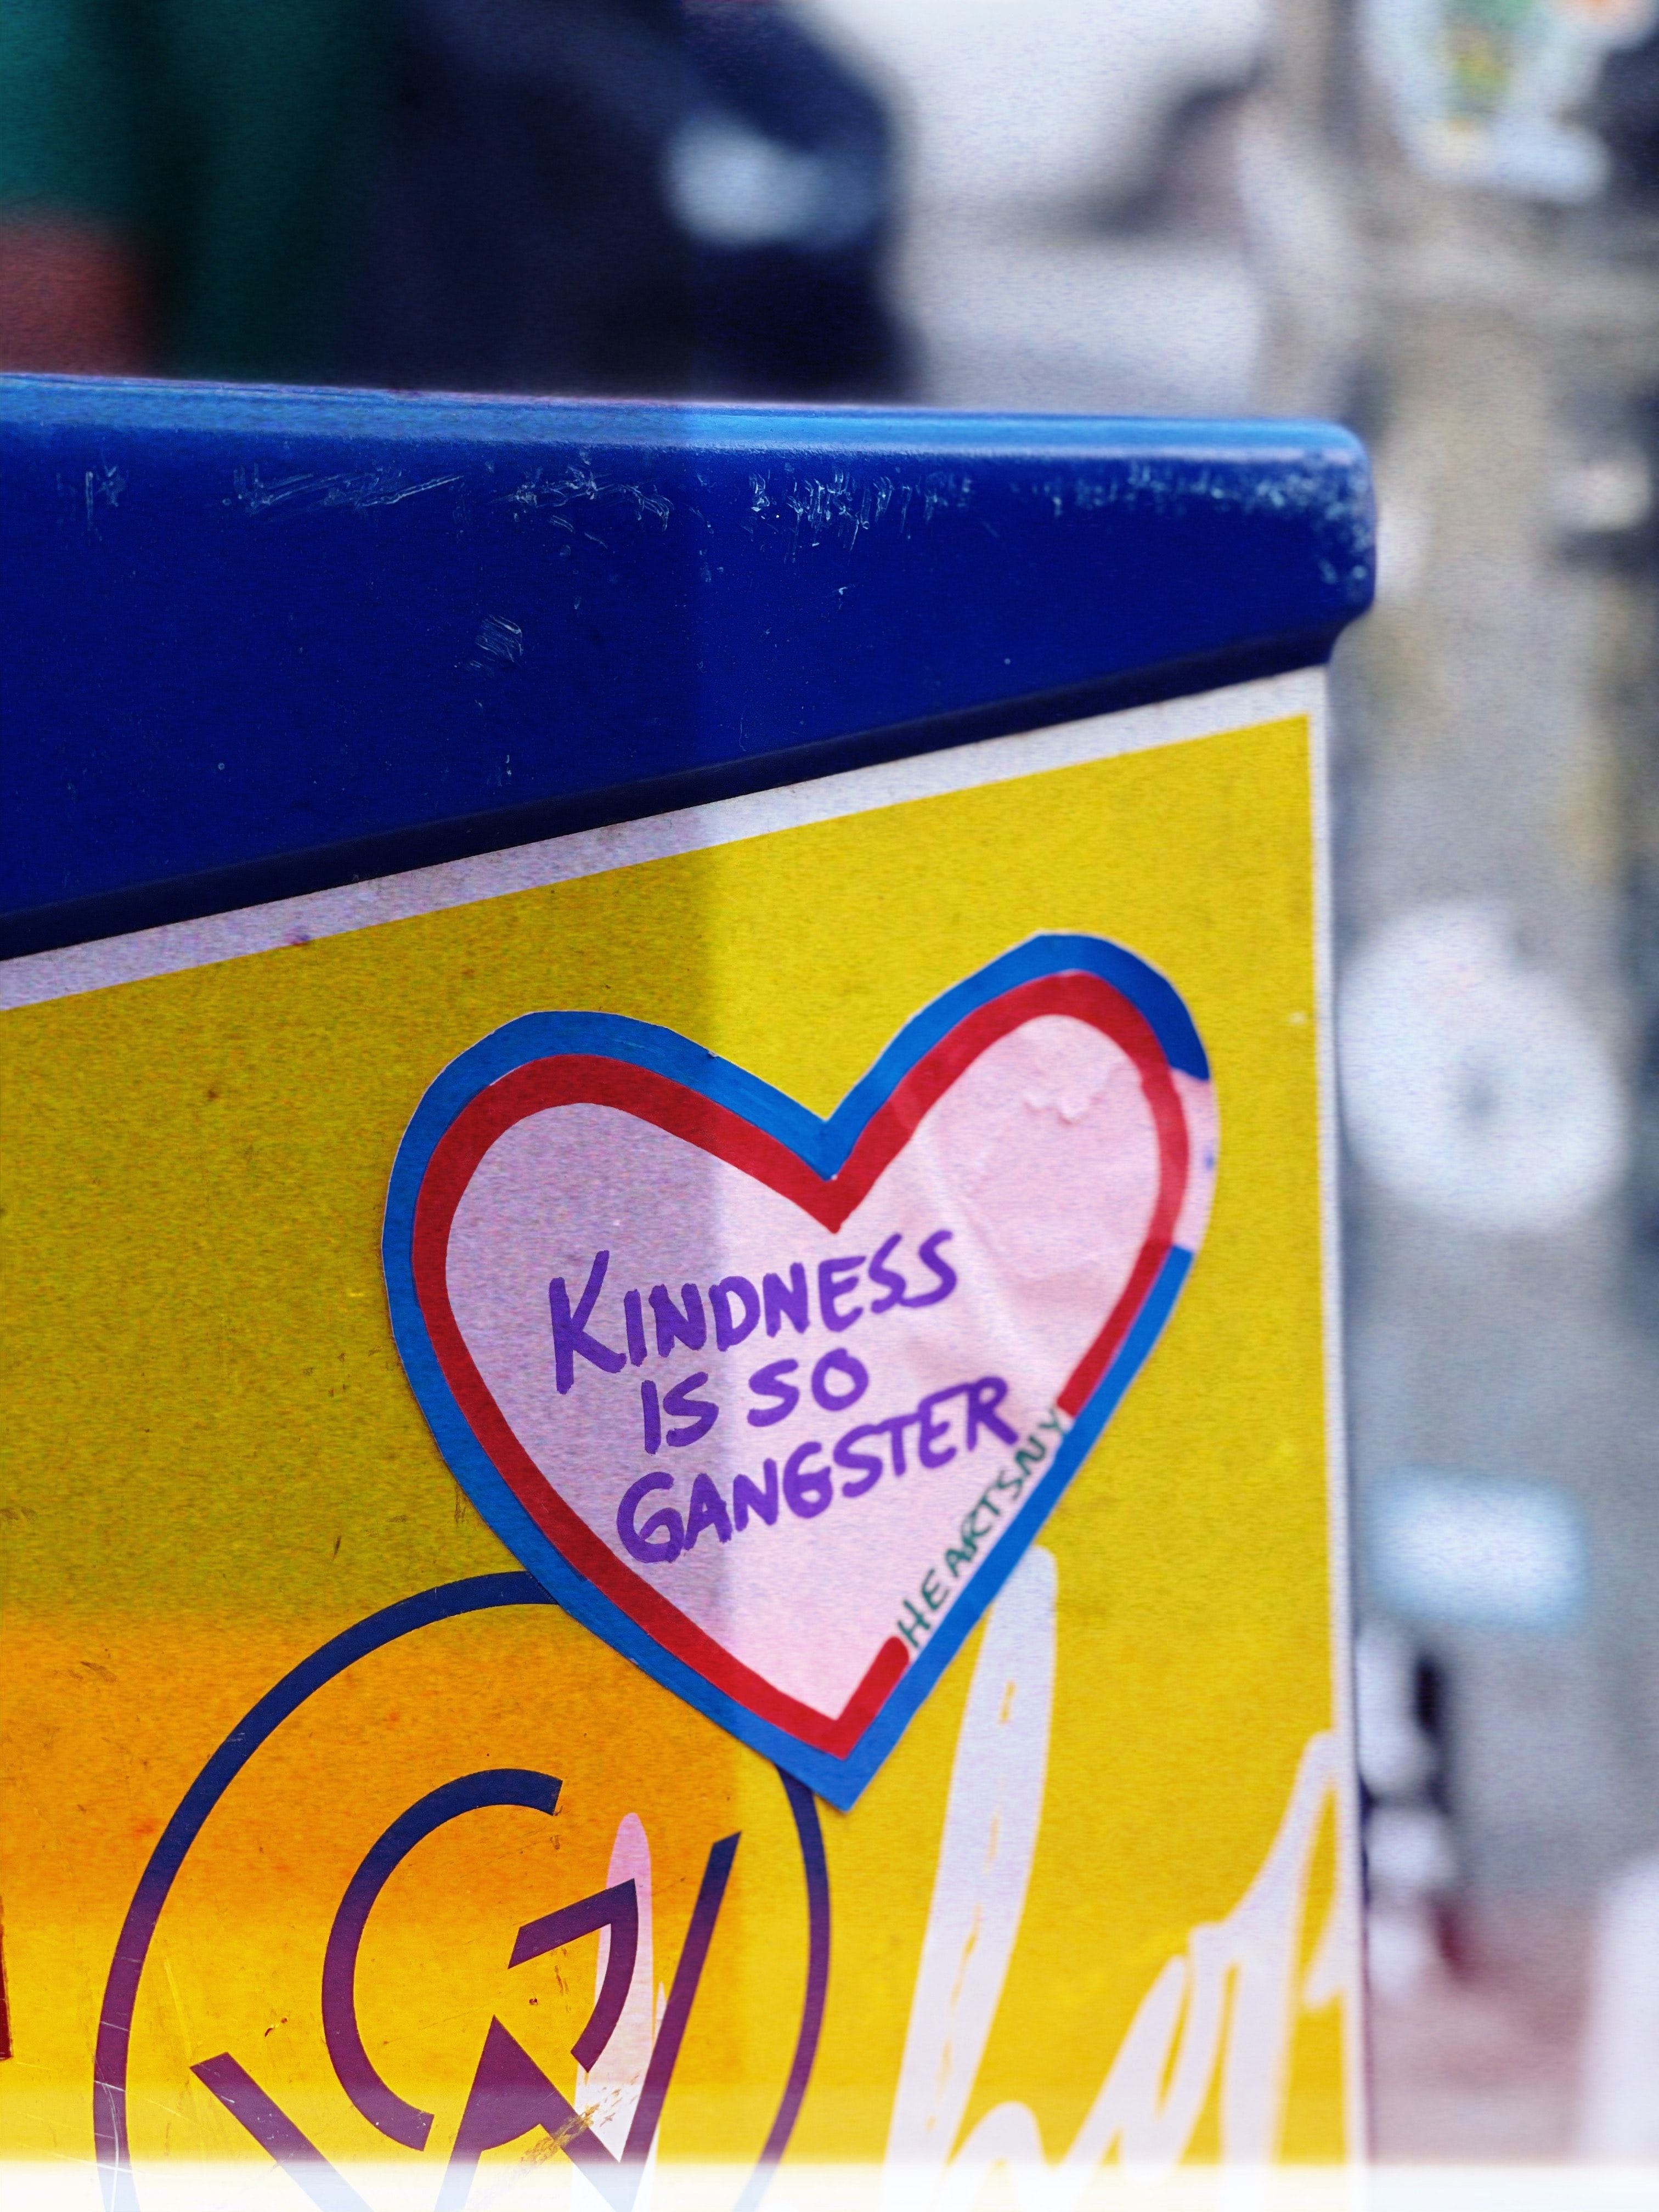 KINDNESS
IS SO
GANGSTER
HEARTSNY